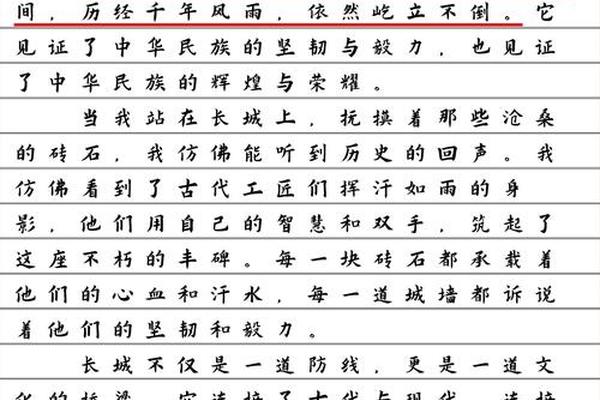 间，历经千年风雨，依然屹立不倒。它
见证了中华民族的坚韧与毅力，也见证
了中华民族的辉煌与荣耀。
当我站在长城上，抚摸着那些沧桑
的砖石，我仿佛能听到历史的回声。我
仿佛看到了古代工匠们挥汗如雨的身
影，他们用自己的智慧和双手，筑起了
这座不朽的丰碑。每一块砖石都承载着
他们的心血和汗水，每一道城墙都诉说
着他们的坚韧和毅力。
长城不仅是一道防线，更是一道文
化的桥梁。它连接了古代与现代，连接